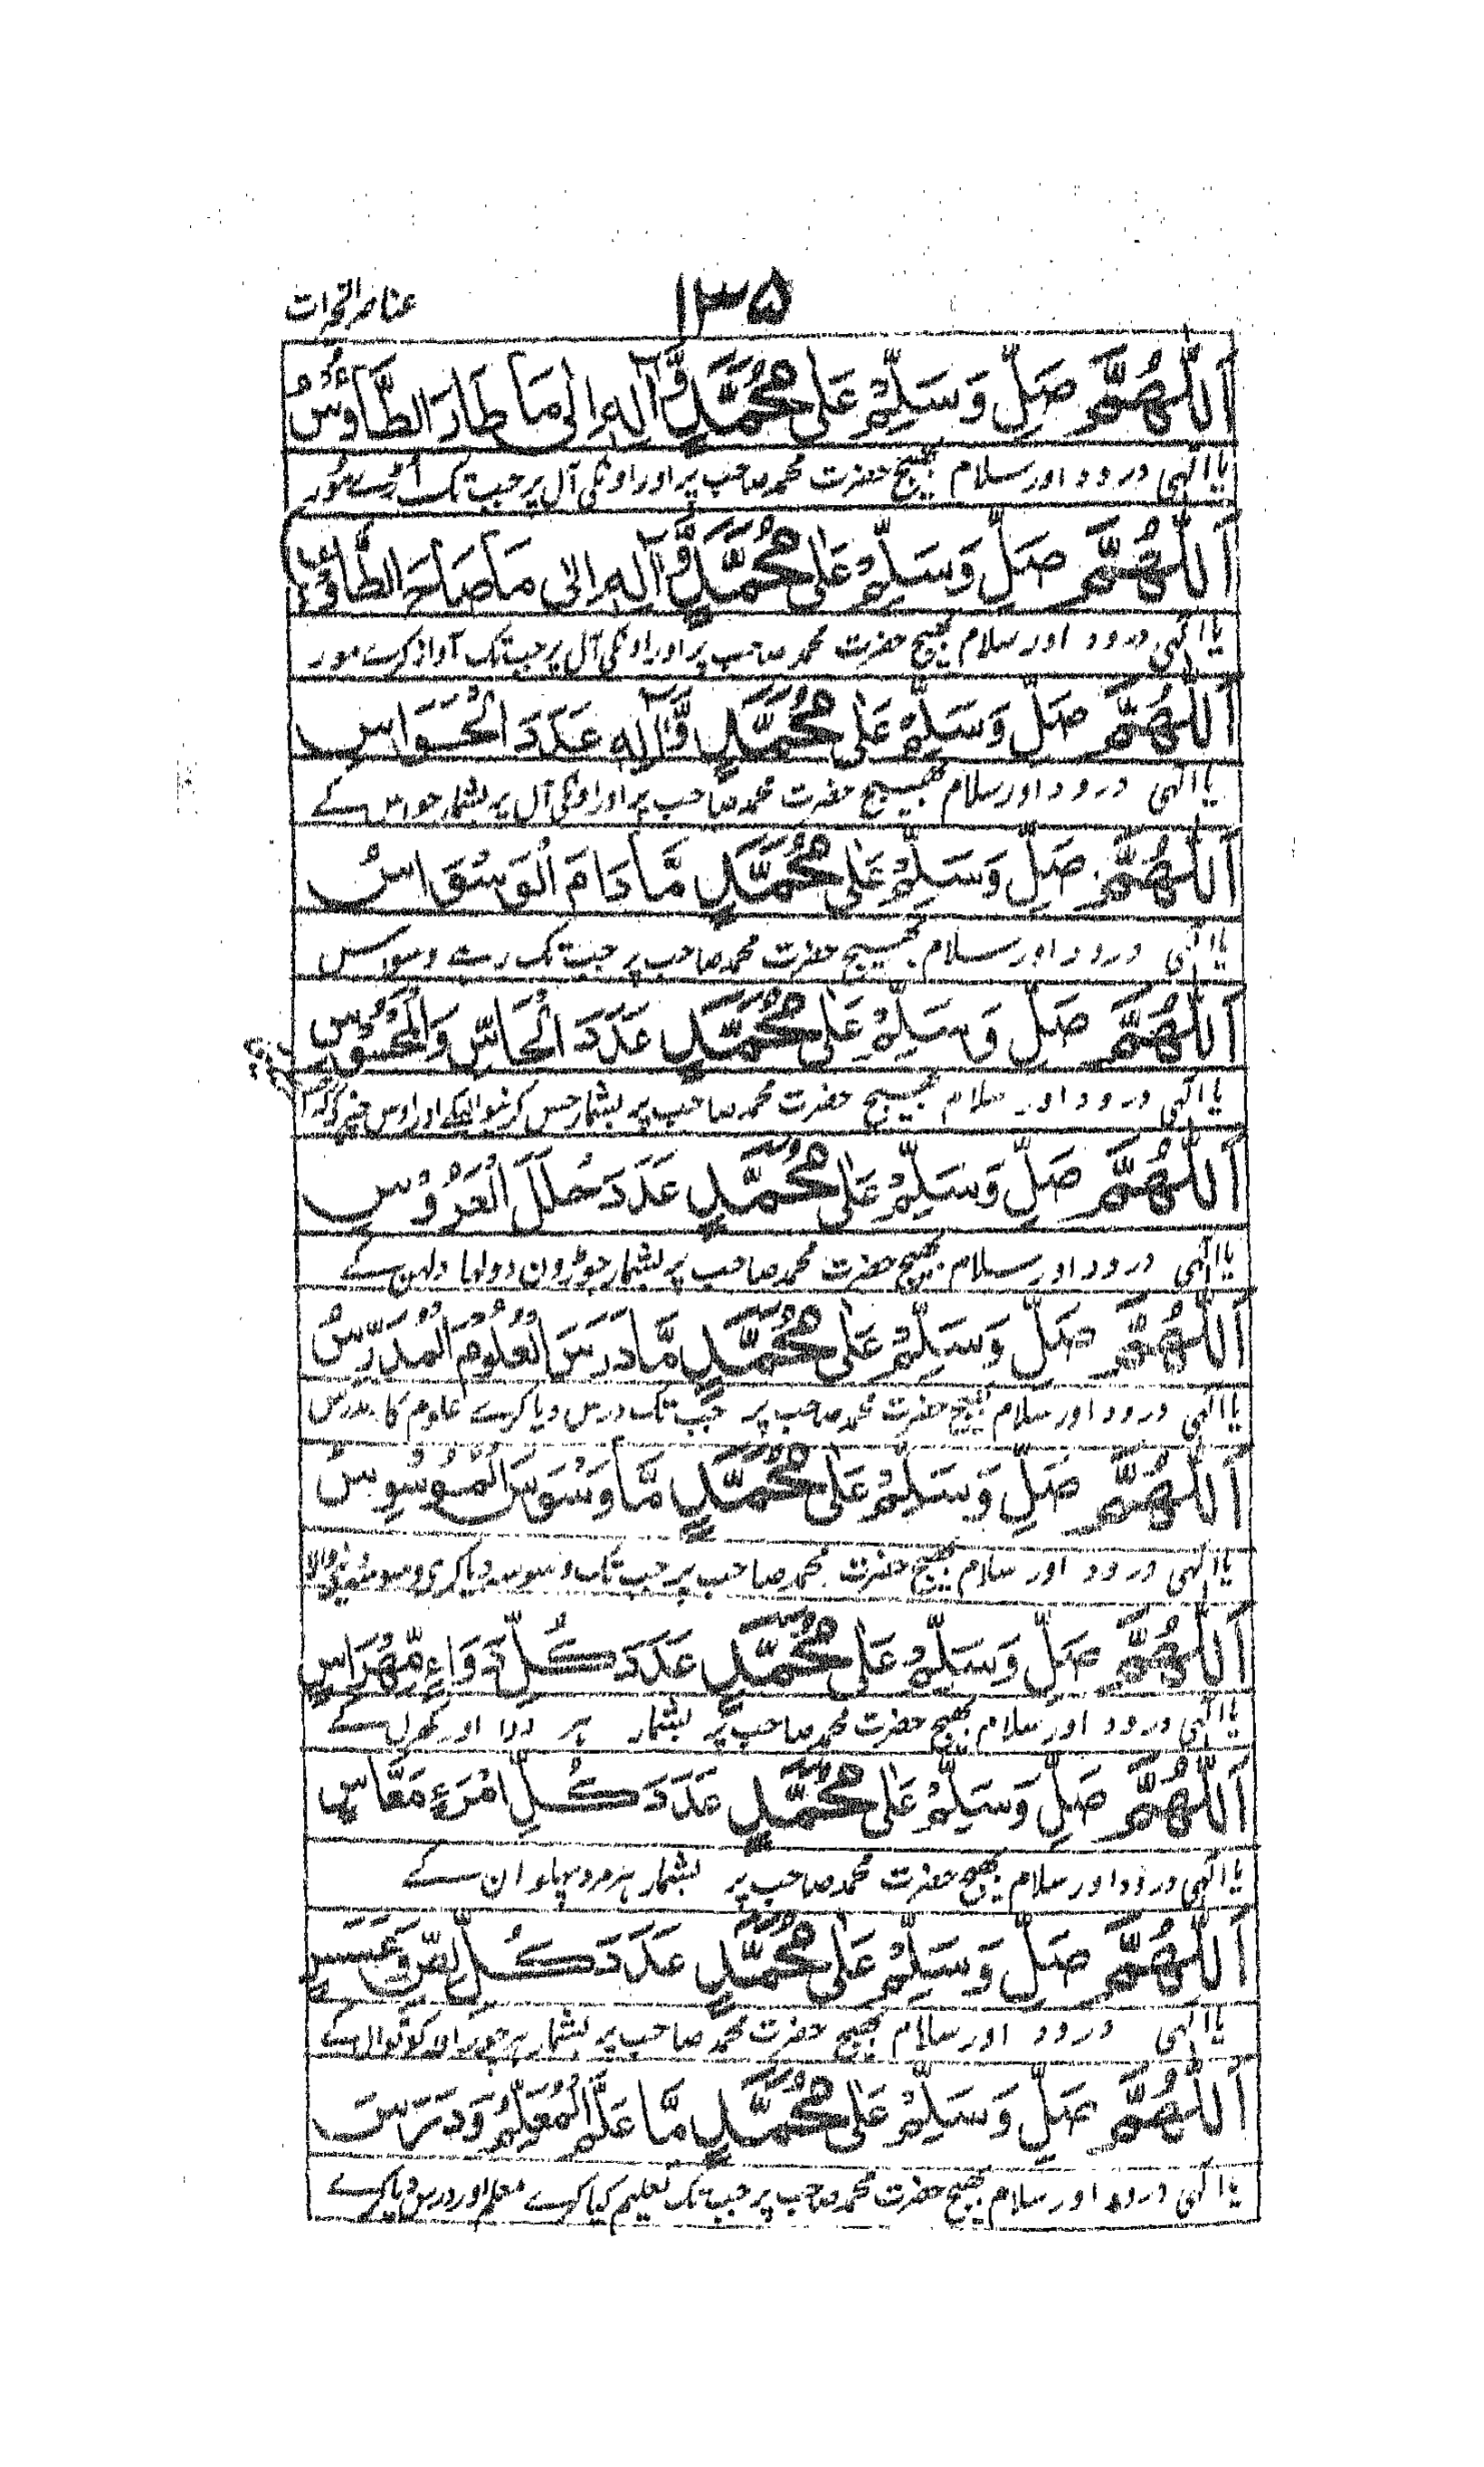 ۱۳۵
عناصر الخیرات
اَللّٰهُمَّ صَلِّ وَسَلِّمْ عَلٰى مُحَمَّدٍ وَّآلِهٖ اِلٰى مَا طَارَ الطَّاؤُسُ
یا الٰہی درود اور سلام بھیج حضرت محمد صاحب پر اور اونکی آل پر جب تک اُڑے مور
اَللّٰهُمَّ صَلِّ وَسَلِّمْ عَلٰى مُحَمَّدٍ وَّآلِهٖ اِلٰى مَا صَاحَ الطَّاؤُسُ
یا الٰہی درود اور سلام بھیج حضرت محمد صاحب پر اور اونکی آل پر جب تک آواز کرے مور
اَللّٰهُمَّ صَلِّ وَسَلِّمْ عَلٰى مُحَمَّدٍ وَّآلِهٖ عَدَدَ الْحَوَاسِ
یا الٰہی درود اور سلام بھیج حضرت محمد صاحب پر اور اونکی آل پر بشمار حواس کے
اَللّٰهُمَّ صَلِّ وَسَلِّمْ عَلٰى مُحَمَّدٍ مَّا دَامَ الْوَسْوَاسُ
یا الٰہی درود اور سلام بھیج حضرت محمد صاحب پر جب تک رہے وسواس
اَللّٰهُمَّ صَلِّ وَسَلِّمْ عَلٰى مُحَمَّدٍ عَدَدَ الْحَاسِّ وَالْمَحْسُوْسِ
یا الٰہی درود اور سلام بھیج حضرت محمد صاحب پر بشمار حس کرنیوالیکے اور اوس چیز کے
اَللّٰهُمَّ صَلِّ وَسَلِّمْ عَلٰى مُحَمَّدٍ عَدَدَ حُلَلِ الْعَرُوْسِ
یا الٰہی درود اور سلام بھیج حضرت محمد صاحب پر بشمار جوڑون دولہا دلہن کے
اَللّٰهُمَّ صَلِّ وَسَلِّمْ عَلٰى مُحَمَّدٍ مَّا دَرَسَ الْعُلُوْمَ الْمُدَرِّسُ
یا الٰہی درود اور سلام بھیج حضرت محمد صاحب پر جب تک درس دیا کرے علوم کا مدرس
اَللّٰهُمَّ صَلِّ وَسَلِّمْ عَلٰى مُحَمَّدٍ مَّا وَسْوَسَ الْمُوَسْوِسُ
یا الٰہی درود اور سلام بھیج حضرت محمد صاحب پر جب تک وسوسہ دیا کرے وسوسہ
اَللّٰهُمَّ صَلِّ وَسَلِّمْ عَلٰى مُحَمَّدٍ عَدَدَ كُلِّ دَوَاءٍ مِّهْرَاسٍ
یا الٰہی درود اور سلام بھیج حضرت محمد صاحب پر بشمار ہر دوا اور کھرل کے
اَللّٰهُمَّ صَلِّ وَسَلِّمْ عَلٰى مُحَمَّدٍ عَدَدَ كُلِّ امْرَءٍ مَعَّاسٍ
یا الٰہی درود اور سلام بھیج حضرت محمد صاحب پر بشمار ہر مرد پہلوان کے
اَللّٰهُمَّ صَلِّ وَسَلِّمْ عَلٰى مُحَمَّدٍ عَدَدَ كُلِّ لِصٍّ وَّعَسَسٍ
یا الٰہی درود اور سلام بھیج حضرت محمد صاحب پر بشمار ہر چور اور کوتوال کے
اَللّٰهُمَّ صَلِّ وَسَلِّمْ عَلٰى مُحَمَّدٍ مَّا عَلَّمَ الْمُعَلِّمُ وَدَرَسَ
یا الٰہی درود اور سلام بھیج حضرت محمد صاحب پر جب تک تعلیم کیا کرے معلم اور درس دیا کرے